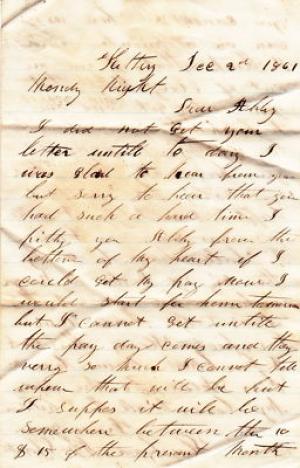 Dec 2d 1861
Monday Night
Dear Abby
I did not get your
letter untill to day I
was glad to hear from you
but sorry to hear that you
had such a hard time I
pitty you Abby from the
bottom of my heart if I
could get my pay now I
would start for home tomorrow
but I cannot get untill
the pay day comes and they
verry so much I cannot tell
when that will be but
I suppos it will be
somewhere between the 10
& 15 of the present Month